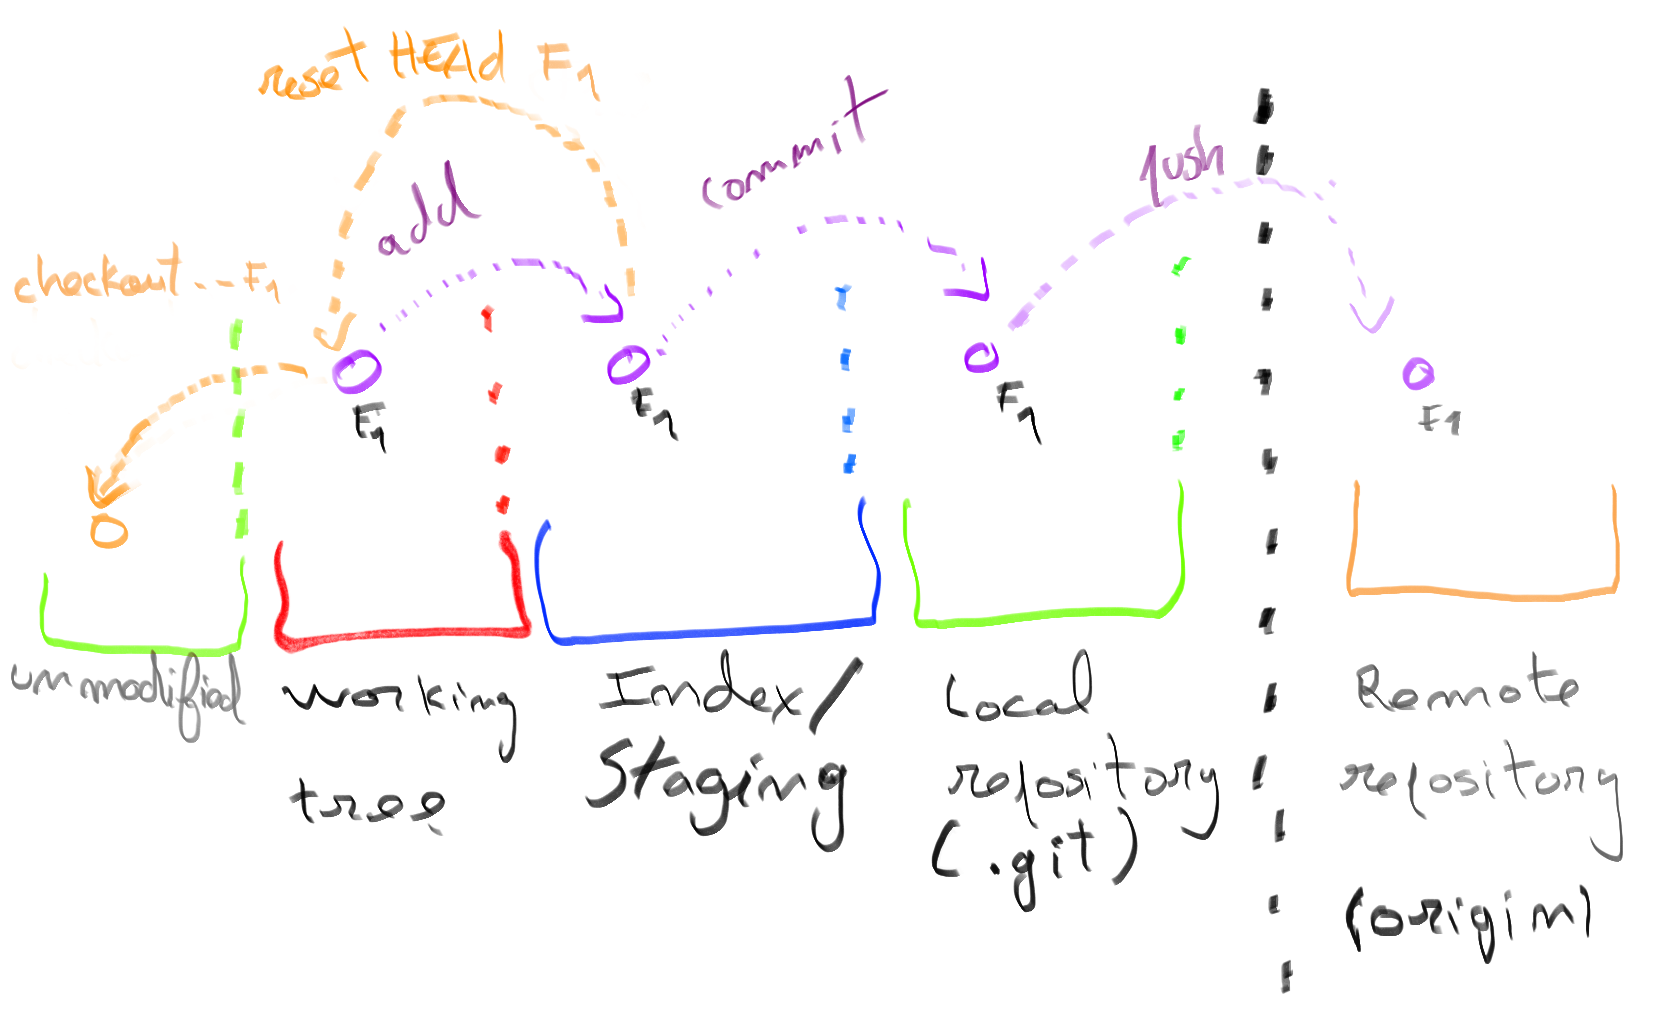 reset HEAd F1
add
commit
push
checkout -- F1
F1
F1
F1
F1
unmodified
working
tree
Index/
Staging
Local
repository
(.git)
Remote
repository
(origin)